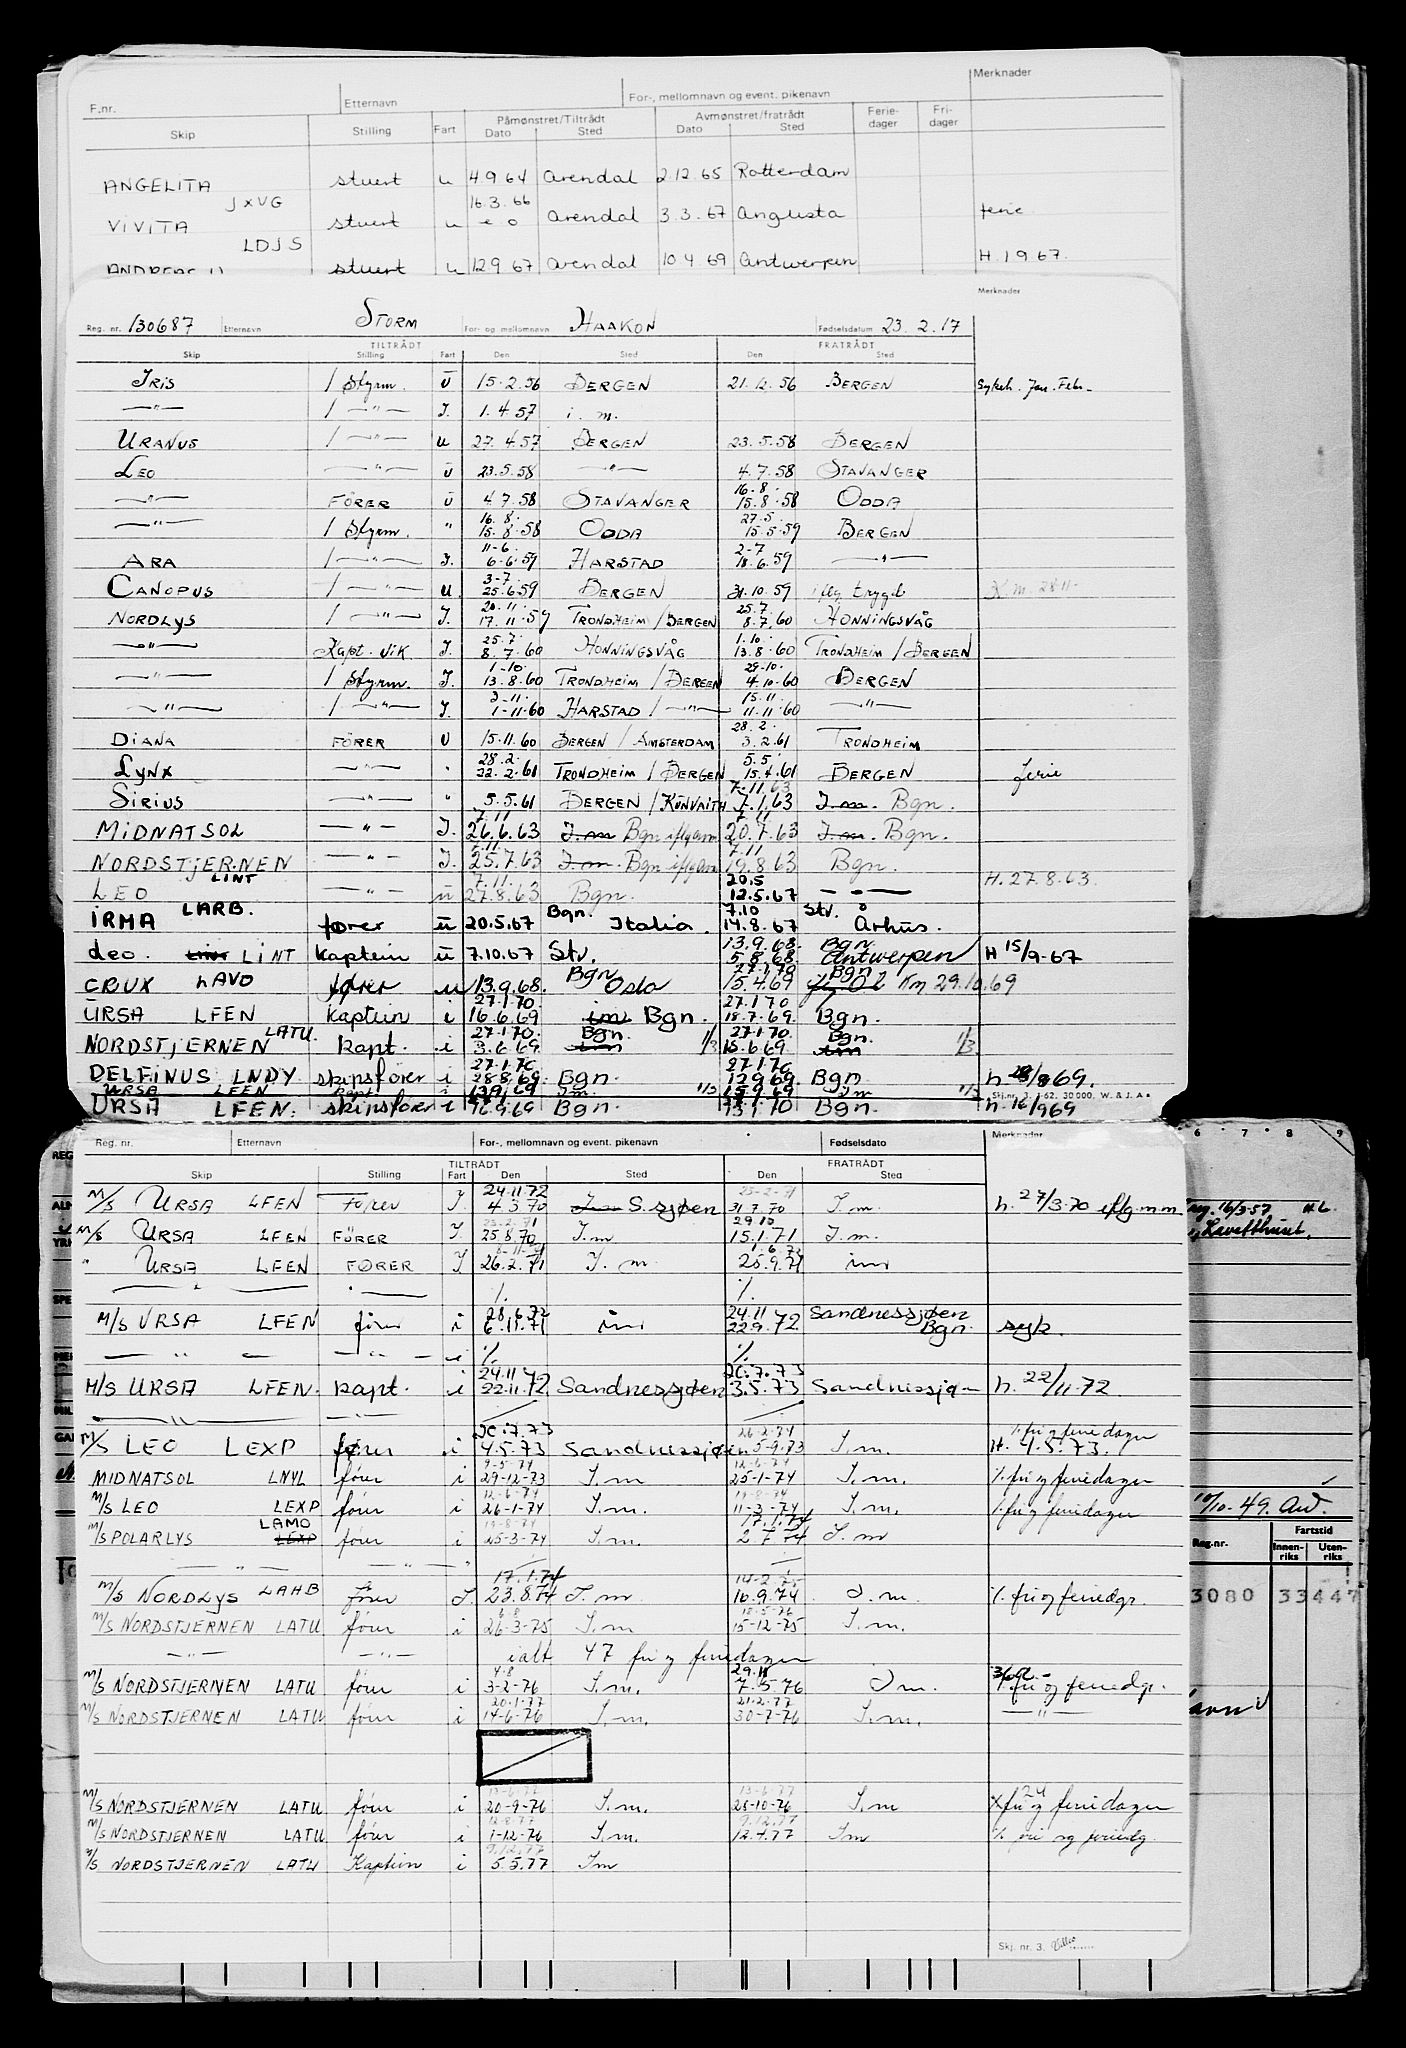 F.nr. Etternavn For-, mellomnavn og event. pikenavn Merknader
Skip Stilling Fart Påmønstret/Tiltrådt Dato Sted Avmønstret/fratrådt Dato Sted Ferie-dager Fri-dager
ANGELITA stuert u 4.9.64 Arendal 2.12.65 Rotterdam
JXVG 16.3.66
VIVITA stuert u Arendal 3.3.67 Angusta ferie
LDJS
stuert u 12.9.67 Arendal 10.4.69 Antwerpen H.1.9.67.
Merknader
Reg. nr. 130687 Etternavn STORM For- og mellomnavn HAAKON Fødselsdatum 23.2.17
TILTRÅDT FRATRÅDT
Skip Stilling Fart Den Sted Den Sted
IRIS 1 Styrm. ū 15.2.56 BERGEN 21.12.56 BERGEN Sykeh. Jan. Febr.
—"— 1 —"— I. 1.4.57 i.m.
URANUS 1 —"— u 27.4.57 BERGEN 23.5.58 BERGEN
LEO —"— ū 23.5.58 —"— 4.7.58 STAVANGER
16.8.
—"— FÖRER ū 4.7.58 STAVANGER 15.8.58 ODDA
16.8. 27.5.
—"— 1 Styrm. " 15.8.58 ODDA 15.5.59 BERGEN
11-6. 2-7
ARA 1 —"— I. 6.6.59 HARSTAD 18.6.59 —"—
3-7.
CANOPUS 1 —"— u. 25.6.59 BERGEN 31.10.59 iflg trygd K.m. 28.11.
20.11. 25.7.
NORDLYS 1 —"— I. 17.11.59 TRONDHEIM/BERGEN 8.7.60 HONNINGSVÅG
25.7. 1.10.
—"— Kapt. vik I. 8.7.60 HONNINGSVÅG 13.8.60 TRONDHEIM/BERGEN
1-10. 29-10.
—"— 1 Styrm. I. 13.8.60 TRONDHEIM/BERGEN 4.10.60 BERGEN
3-11. 15.11.
—"— 1 —"— I. 1-11.60 HARSTAD/—"— 11.11.60 —"—
28.2.
DIANA FÖRER U 15.11.60 BERGEN/AMSTERDAM 3.2.61 TRONDHEIM
28.2. 5.5.
LYNX —"— " 22.2.61 TRONDHEIM/BERGEN 15.4.61 BERGEN ferie
7.11.63
SIRIUS —"— " 5.5.61 BERGEN/KUWAITH 7.1.63 I.m. Bgn.
7.11 7.11
MIDNATSOL —"— I. 26.6.63 I.m Bgn iflg am 20.7.63 I.m. Bgn.
7.11 7.11
NORDSTJERNEN —"— I. 25.7.63 I.m. Bgn iflg am 19.8.63 Bgn.
7.11. 20.5
LEO LINT —"— ū 27.8.63 Bgn. 12.5.67 —"— H.27.8.63.
7.10 Stv.
IRMA LARB. fører ū 20.5.67 Bgn. Italia. 14.8.67 Århus.
13.9.68. Bgn.
Leo. LINT LINT kaptein ū 7.10.67 Stv. 5.8.68 Antwerpen H 15/9-67
27.1.70 Bgn
CRUX LAVO fører u 13.9.68. Bgn Oslo 15.4.69 Km 29.10.69
27.1.70. 27.1.70
URSA LFEN kaptein i 16.6.69 im Bgn. 18.7.69. Bgn.
27.1.70. Bgn. 27.1.70. Bgn.
NORDSTJERNEN LATU. kapt. i 3.6.69. im 1/3 15.6.69. im 1/3.
27.1.70 27.1.70
DELFINUS LNDY skipsfører i 28.8.69. Bgn. 12.9.69. Bgn h. 28/8 69.
URSA LFEN kapt i 13.9.69 Im. 1/3 15.9.69 Im 1/3
Skj.nr. 3. 1-62. 30 000. W. & J. A/s
URSA LFEN. skipsfører i 16.9.69 Bgn. 13.1.70 Bgn. h. 16/9 69
Reg. nr. Etternavn For-, mellomnavn og event. pikenavn Fødselsdato Merknader
TILTRÅDT FRATRÅDT
Skip Stilling Fart Den Sted Den Sted
24.11.72 25-2-71
M/S URSA LFEN Fører I. 4.3.70 S.sjøen 31.7.70 I.m. h. 27/3.70 iflg.m.m
25-2-71 29.10
M/S URSA LFEN FÖRER I. 25.8.70 I.m 15.1.71 I.m.
8-11-71 1.6.72
" URSA LFEN FØRER I 26.2.71 I.m 25.9.71 im
—"— —"— %. %.
28.6.72 24.11 Sandnessjøen
M/S URSA LFEN fører i 6.11.71 im 22.9.72 Bgn. syk.
—"— —"— i %. %.
24.11 20.7.73
M/S URSA LFEN. kapt. i 22.11.72 Sandnessjøen 3.5.73 h. 22/11.72.
—"— —"—
20.7.73 26-2-74 %. fri og feriedager
M/S LEO LEXP fører i 4.5.73 Sandnessjøen 5-9.73 I.m. H. 4.5.73.
9-5-74 12-6-74
MIDNATSOL LNYL fører i 29-12-73 I.m 25-1-74 I.m. %. fri og feriedager
12-6-74 19-8-74
M/S LEO LEXP fører i 26-1-74 I.m. 11-3-74 I.m. %. fri og feriedager
19-8-74 17.1.74
M/S POLARLYS LAMO LEXP fører i 25-3-74 I.m. 2.7.74 I.m
—"— —"— "
17.1.74 14-2-75
M/S NORDLYS LAHB fører I. 23.8.74 I.m 16.9.74 I.m. %. fri og feriedgr.
6.8 18-5-76
M/S NORDSTJERNEN LATU fører i 26-3-75 I.m 15-12-75 I.m.
—"— —"— ialt 47 fri og feriedager
4.8 29.11
M/S NORDSTJERNEN LATU fører i 3-2-76 I.m. 7.5.76 I m. %. fri og feriedgr.
20.1-77 21.2.77
M/S NORDSTJERNEN LATU fører i 14-6-76 I.m. 30-7-76 I.m. —"—
13-6-77 13-6-77 24
M/S NORDSTJERNEN LATU fører i 20-9-76 I.m. 25-10-76 I.m fri og feriedager
12.8.77 9.12.77
M/S NORDSTJERNEN LATU fører i 1-12-76 I.m. 12.4.77 Im %. fri og feriedg.
9.12.77
M/S NORDSTJERNEN LATU Kaptein i 5.5.77 Im
Skj. nr. 3.
6 7 8 9
16/3-57
10/10-49.
Reg.nr. Fartstid
Innen-riks Uten-riks
3080 33447